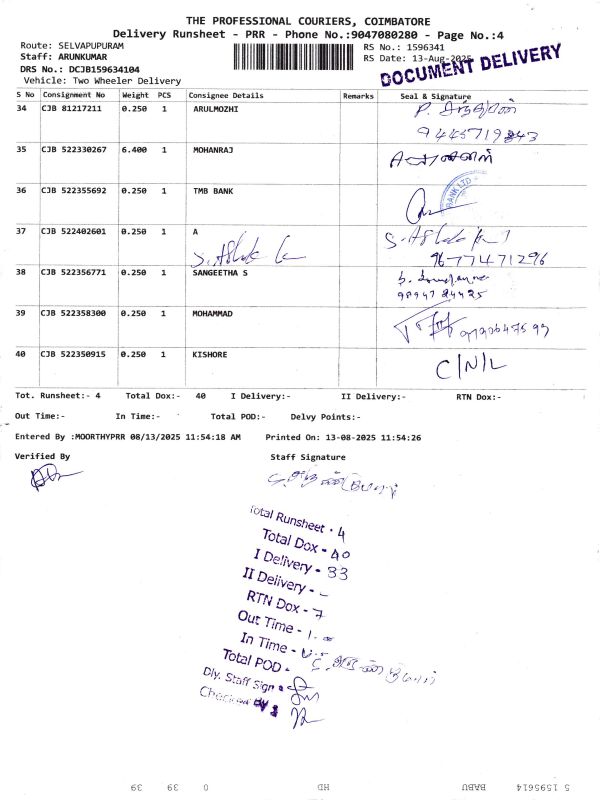 THE PROFESSIONAL COURIERS, COIMBATORE
Delivery Runsheet - PRR - Phone No.:9047080280 - Page No.:4
Route: SELVAPUPURAM
RS No.: 1596341
Staff: ARUNKUMAR
RS Date: 13-Aug-2025
DOCUMENT DELIVERY
DRS No.: DCJB159634104
Vehicle: Two Wheeler Delivery
S No Consignment No Weight PCS Consignee Details Remarks Seal & Signature
34 CJB 81217211 0.250 1 ARULMOZHI
35 CJB 522330267 6.400 1 MOHANRAJ
36 CJB 522355692 0.250 1 TMB BANK
BANK LTD
37 CJB 522402601 0.250 1 A
9677471296
38 CJB 522356771 0.250 1 SANGEETHA S
39 CJB 522358300 0.250 1 MOHAMMAD
40 CJB 522350915 0.250 1 KISHORE
C/N/L
Tot. Runsheet:- 4 Total Dox:- 40 I Delivery:- II Delivery:- RTN Dox:-
Out Time:- In Time:- Total POD:- Delvy Points:-
Entered By :MOORTHYPRR 08/13/2025 11:54:18 AM Printed On: 13-08-2025 11:54:26
Verified By Staff Signature
Total Runsheet - 4
Total Dox - 40
I Delivery - 33
II Delivery - -
RTN Dox - 7
Out Time -
In Time -
Total POD -
Dly. Staff Sign
5 1595614 BABU HD 0 39 39